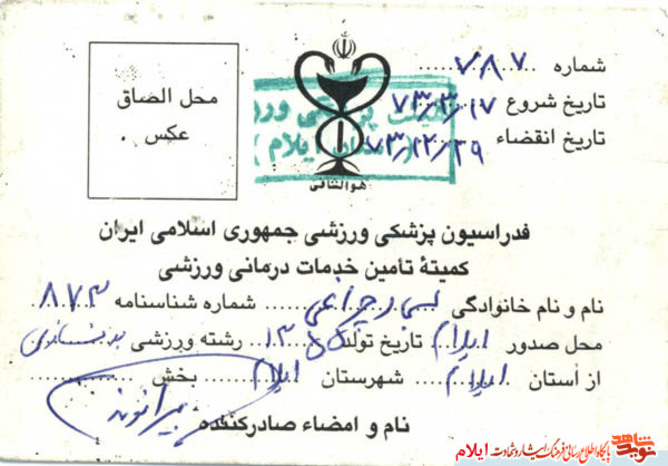 شماره ۷۸۷
تاریخ شروع ۷۳/۳/۱۷
تاریخ انقضاء ۷۳/۱۲/۲۹
محل الصاق
عکس .
هوالشافی
فدراسیون پزشکی ورزشی جمهوری اسلامی ایران
کمیتهٔ تأمین خدمات درمانی ورزشی
نام و نام خانوادگی چراغی شماره شناسنامه ۸۷۳
محل صدور ایلام تاریخ تولد ۱۳ رشته ورزشی بدنسازی
از استان ایلام شهرستان ایلام بخش
نام و امضاء صادرکننده
نوید شاهد
پایگاه اطلاع رسانی فرهنگ ایثار و شهادت ایلام